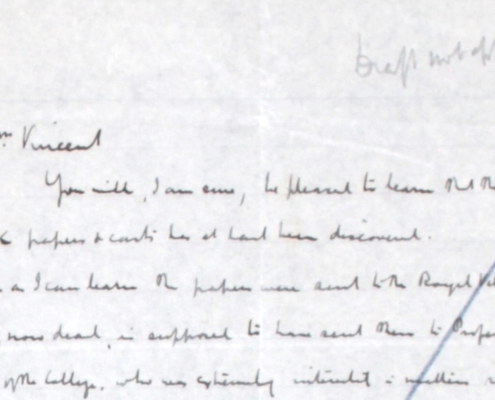 Draft not
Vincent
You will, I am sure, be pleased to learn that the
papers & casts has at last been discovered.
as I can learn the papers were sent to the Royal
now dead, is supposed to have sent them to Profe
of the College, who was extremely interested in matters